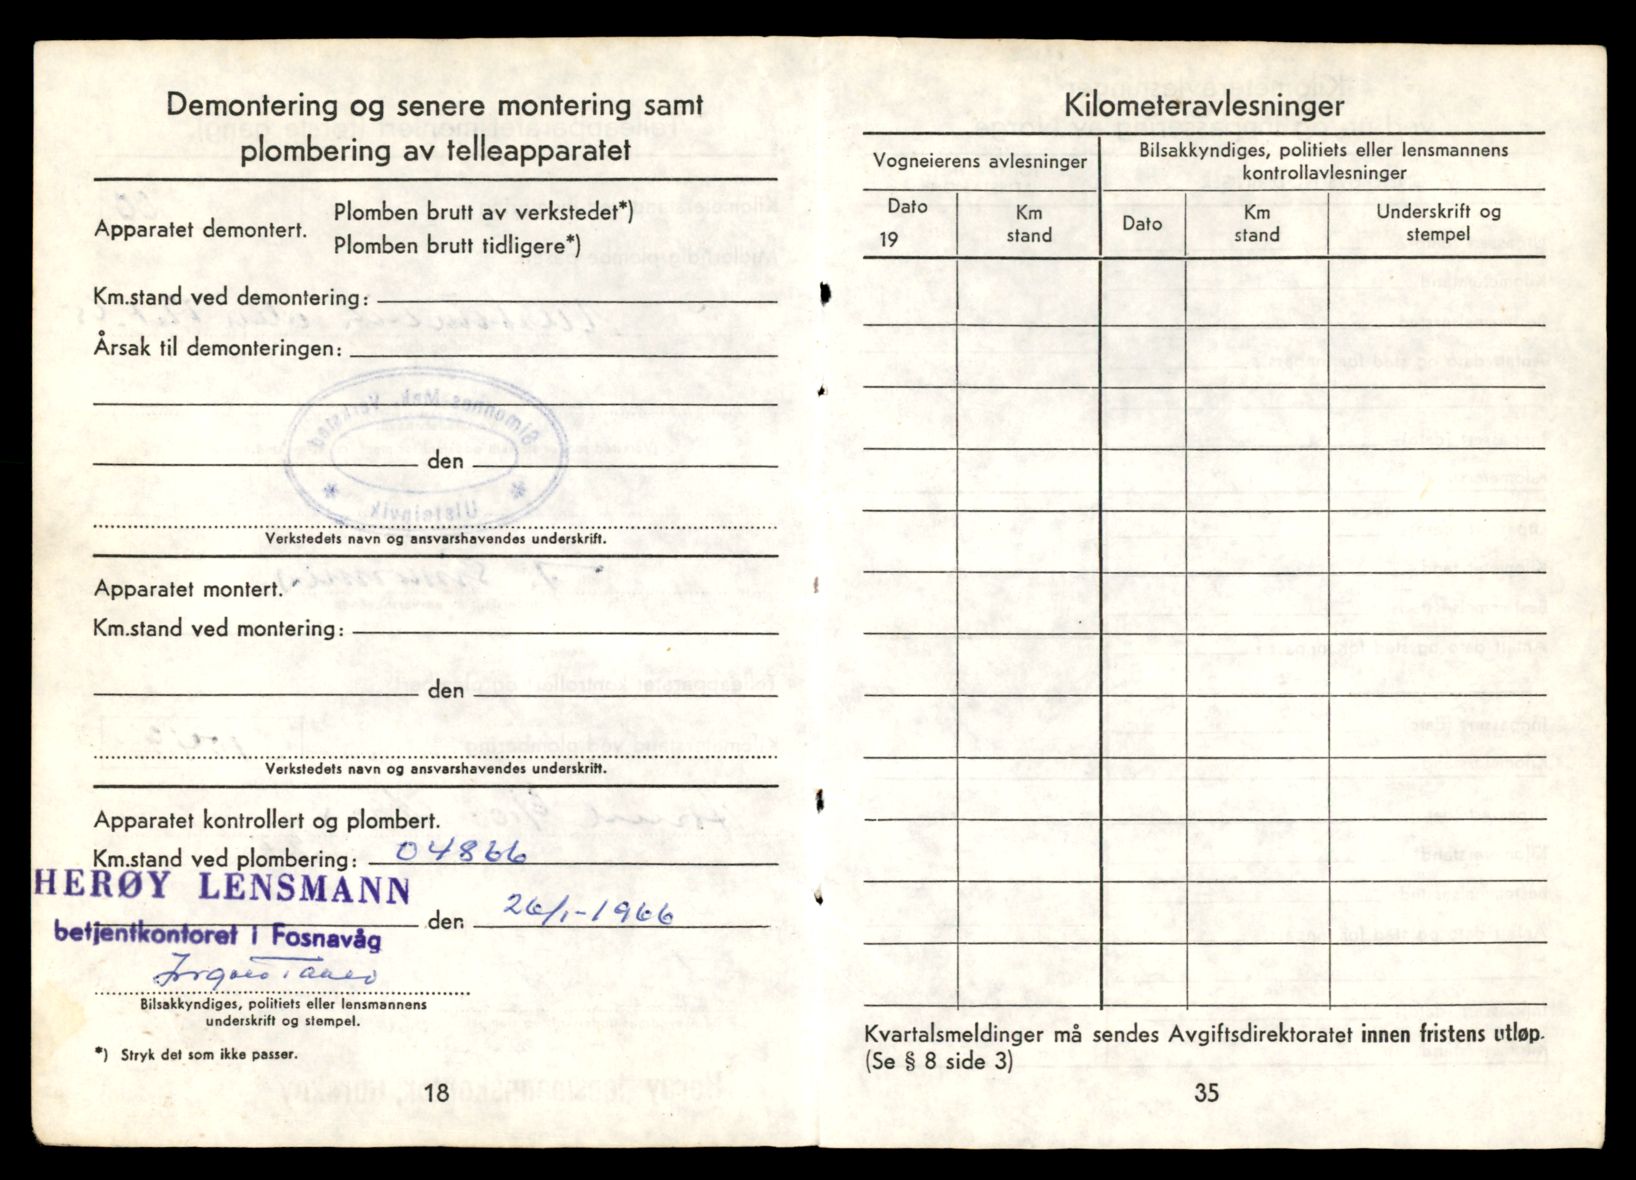 Demontering og senere montering samt
plombering av telleapparatet
Apparatet demontert.
Plomben brutt av verkstedet*)
Plomben brutt tidligere*)
Km.stand ved demontering:
Årsak til demonteringen:
den
Verkstedets navn og ansvarshavendes underskrift.
Apparatet montert.
Km.stand ved montering:
den
Verkstedets navn og ansvarshavendes underskrift.
Apparatet kontrollert og plombert.
Km.stand ved plombering: 04866
HERØY LENSMANN
den 26/1-1966
betjentkontoret i Fosnavåg
Bilsakkyndiges, politiets eller lensmannens
underskrift og stempel.
*) Stryk det som ikke passer.
18
Kilometeravlesninger
Vogneierens avlesninger
Bilsakkyndiges, politiets eller lensmannens
kontrollavlesninger
Dato
19
Km
stand
Dato
Km
stand
Underskrift og
stempel
Kvartalsmeldinger må sendes Avgiftsdirektoratet innen fristens utløp.
(Se § 8 side 3)
35